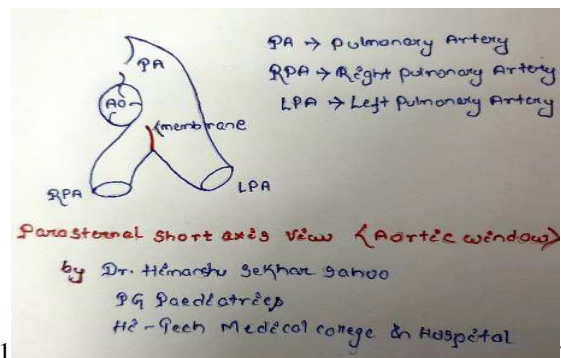 PA → Pulmonary Artery
PA
RPA → Right Pulmonary Artery
AO
LPA → Left Pulmonary Artery
membrane
RPA
LPA
Parasternal short axis view (Aortic window)
by Dr. Himanshu Sekhar Sahoo
PG Paediatrics
Hi-Tech Medical college & Hospital
1